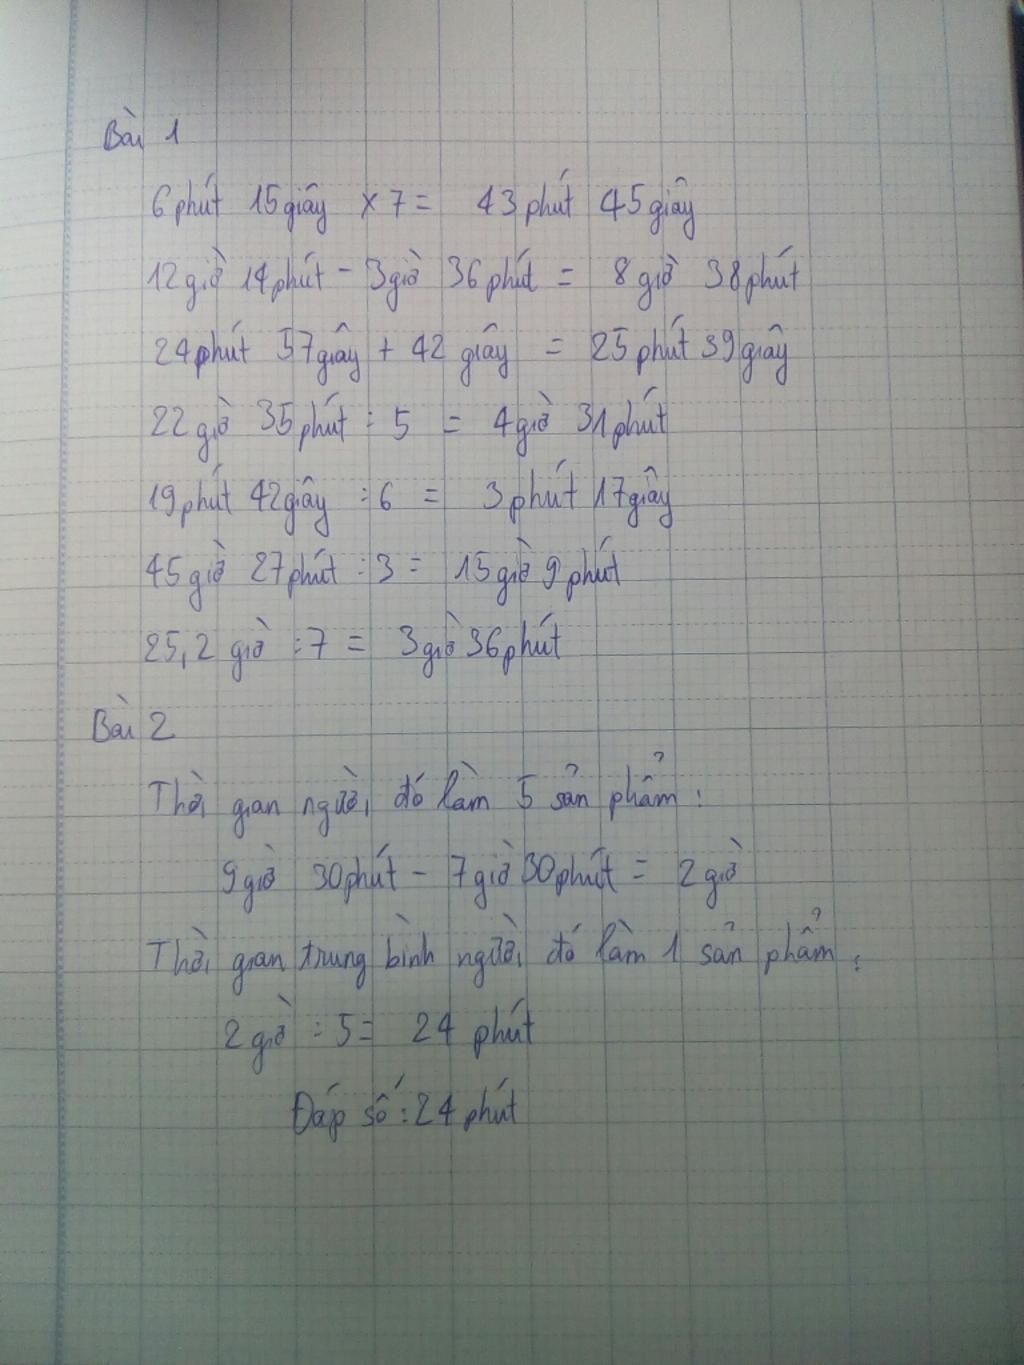 Bài 1
6 phút 15 giây x 7 = 43 phút 45 giây
12 giờ 14 phút - 3 giờ 36 phút = 8 giờ 38 phút
24 phút 57 giây + 42 giây = 25 phút 39 giây
22 giờ 35 phút : 5 = 4 giờ 31 phút
19 phút 42 giây : 6 = 3 phút 17 giây
45 giờ 27 phút : 3 = 15 giờ 9 phút
25,2 giờ : 7 = 3 giờ 36 phút
Bài 2
Thời gian người đó làm 5 sản phẩm :
9 giờ 30 phút - 7 giờ 30 phút = 2 giờ
Thời gian trung bình người đó làm 1 sản phẩm :
2 giờ : 5 = 24 phút
Đáp số : 24 phút